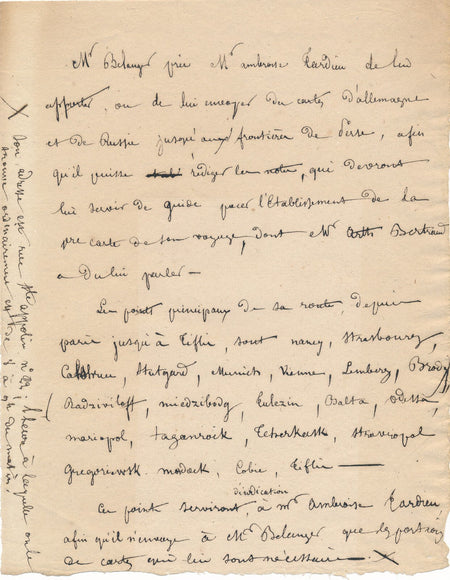 Mr Belanger prie Mr ambroise Tardieu de lui
apporter, ou de lui envoyer des cartes d'allemagne
et de Russie jusqu'aux frontières de Perse, afin
qu'il puisse rédiger les notes, qui devront
lui servir de guide pour l'Etablissement de la
pre carte de son voyage, dont Mr Arth Bertrand
a du lui parler —
Les points principaux de sa route, depuis
paris jusqu'à Tiflis, sont nancy, Strasbourg,
Calsruce, Stutgard, Munich, Vienne, Lemberg, Brody,
Radziviloff, miedzibodg, Tulezin, Balta, odessa,
mariopol, taganrock, Tcherkesk, Stravropol
Gregoriewsk. mosdock, Cobie, Tiflis —
Ces points serviront d'indication à mr Ambroise Tardieu,
afin qu'il n'envoye à Mr Belanger que les portions
de cartes qui lui sont nécessaires. X
X Son adresse est rue Ste appolin n° 29, l'heure à laquelle on le
trouve ordinairement est de 7 à 9h du matin.